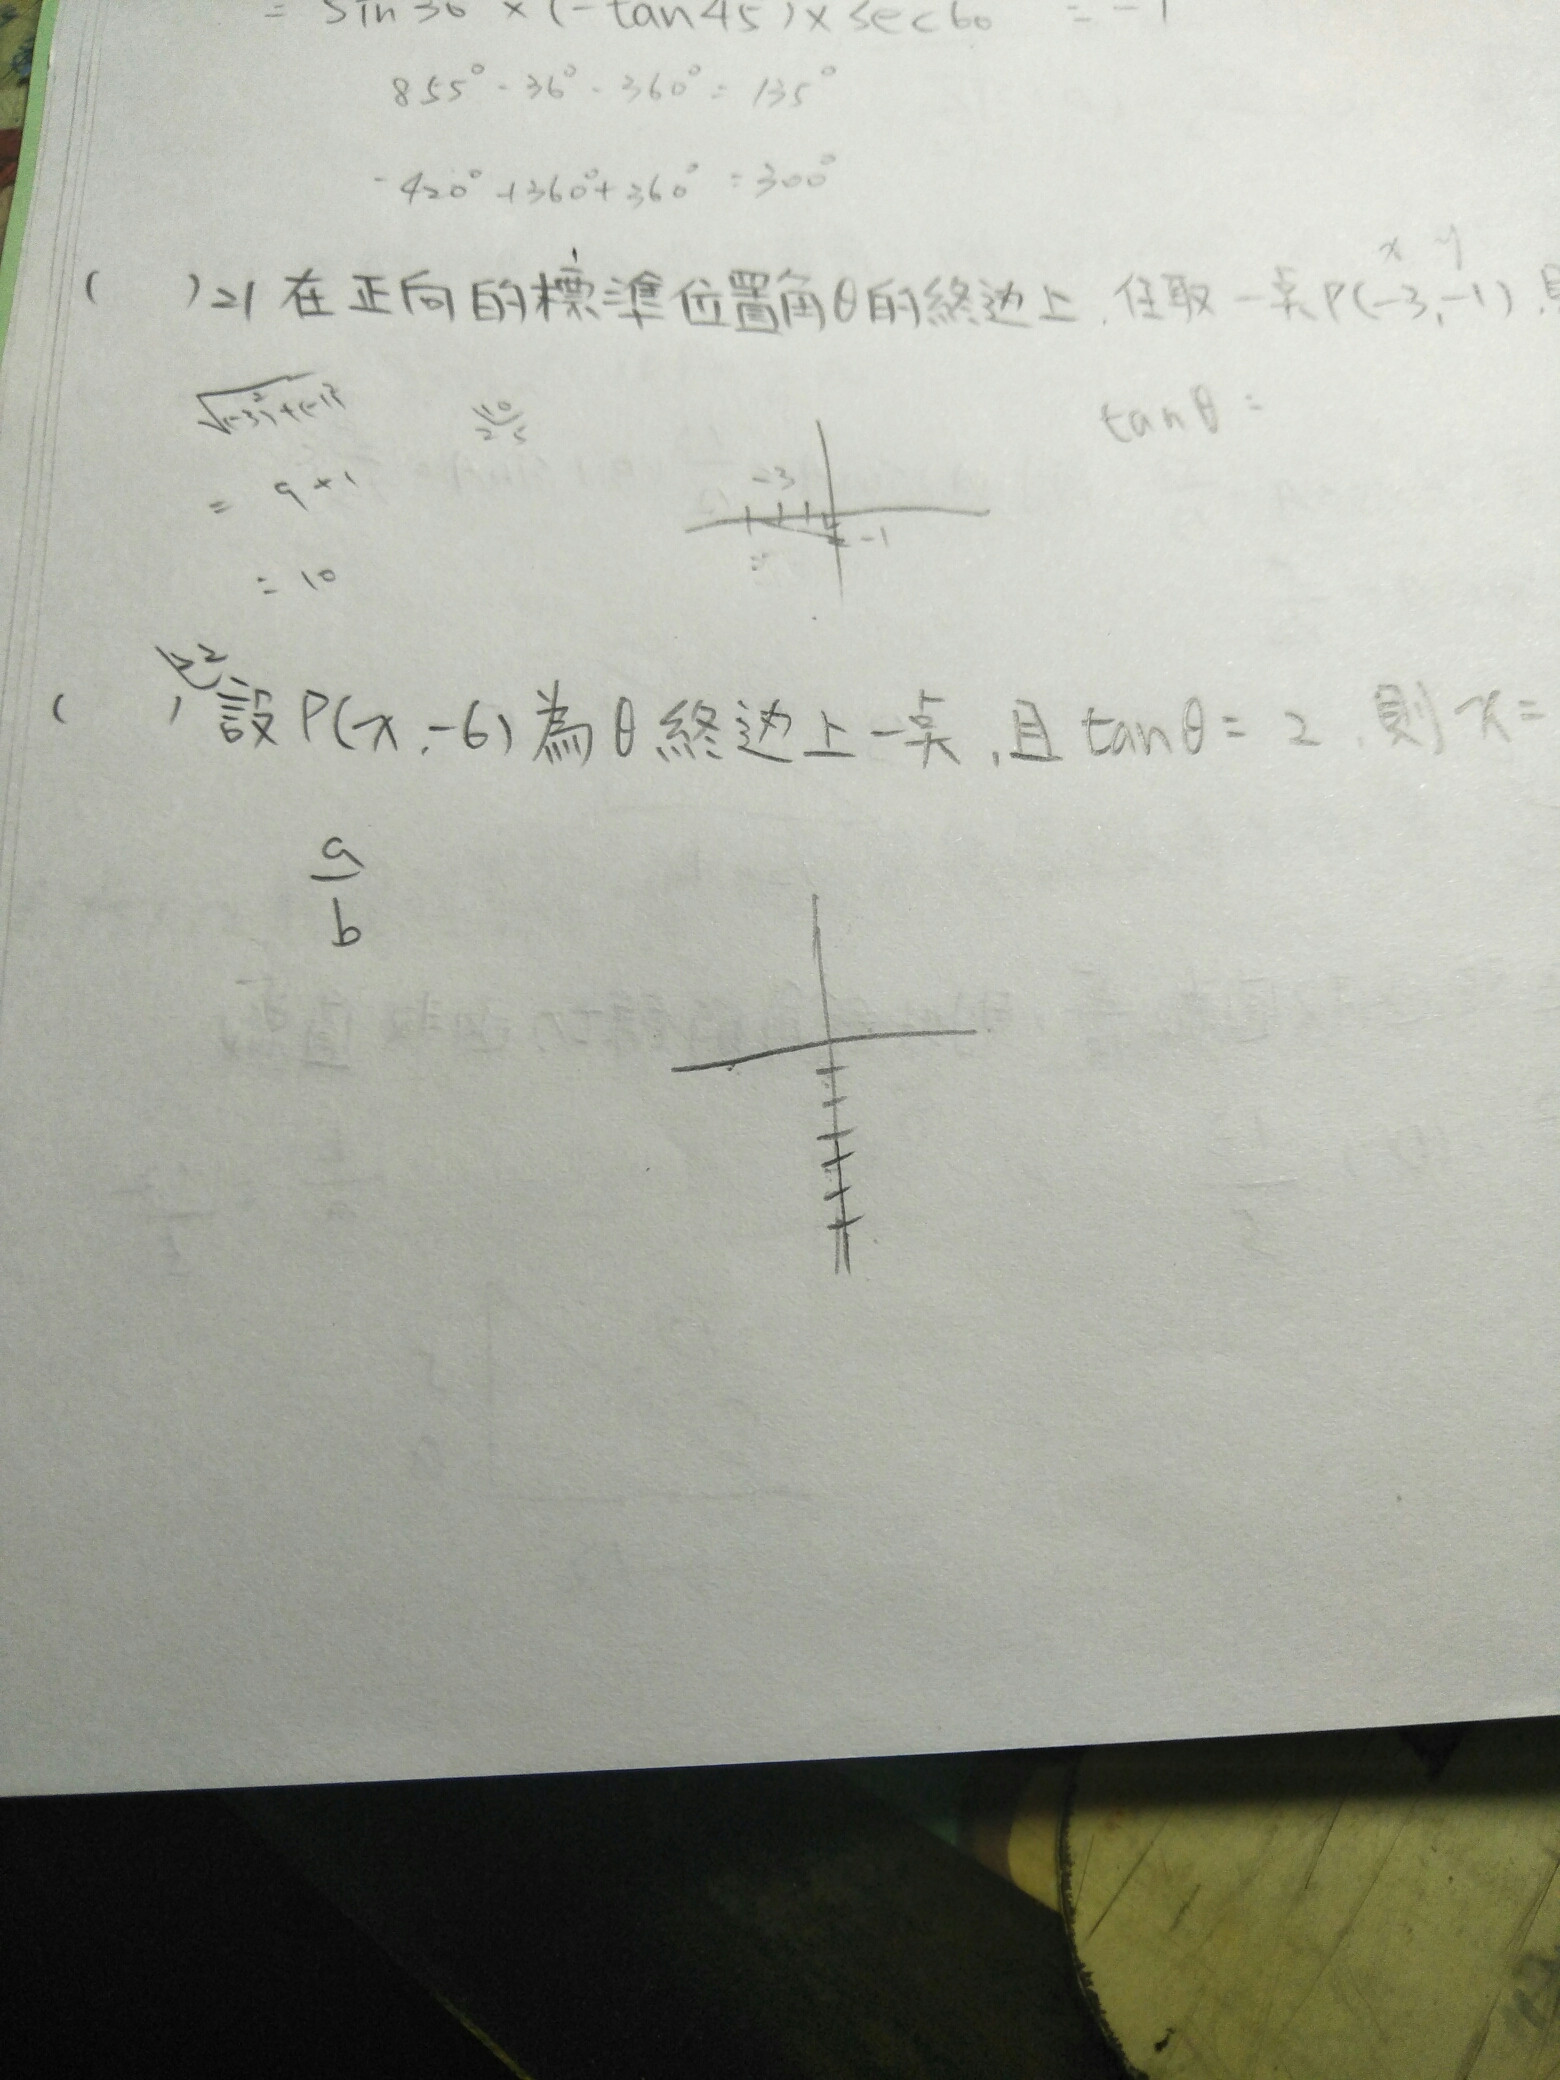 = sin30 × (-tan45) × sec60 = -1
855° - 36° - 360° = 135°
-420° + 360° + 360° = 300°
x y
( ) 21 在正向的標準位置角θ的終边上, 任取一点P(-3,-1),
√(-3)²+(-1)²
10
2 5
tanθ =
= 9+1
-3
-1
= 10
( ) 22 設P(x,-6)為θ終边上一点,且tanθ=2,則x=
a
b